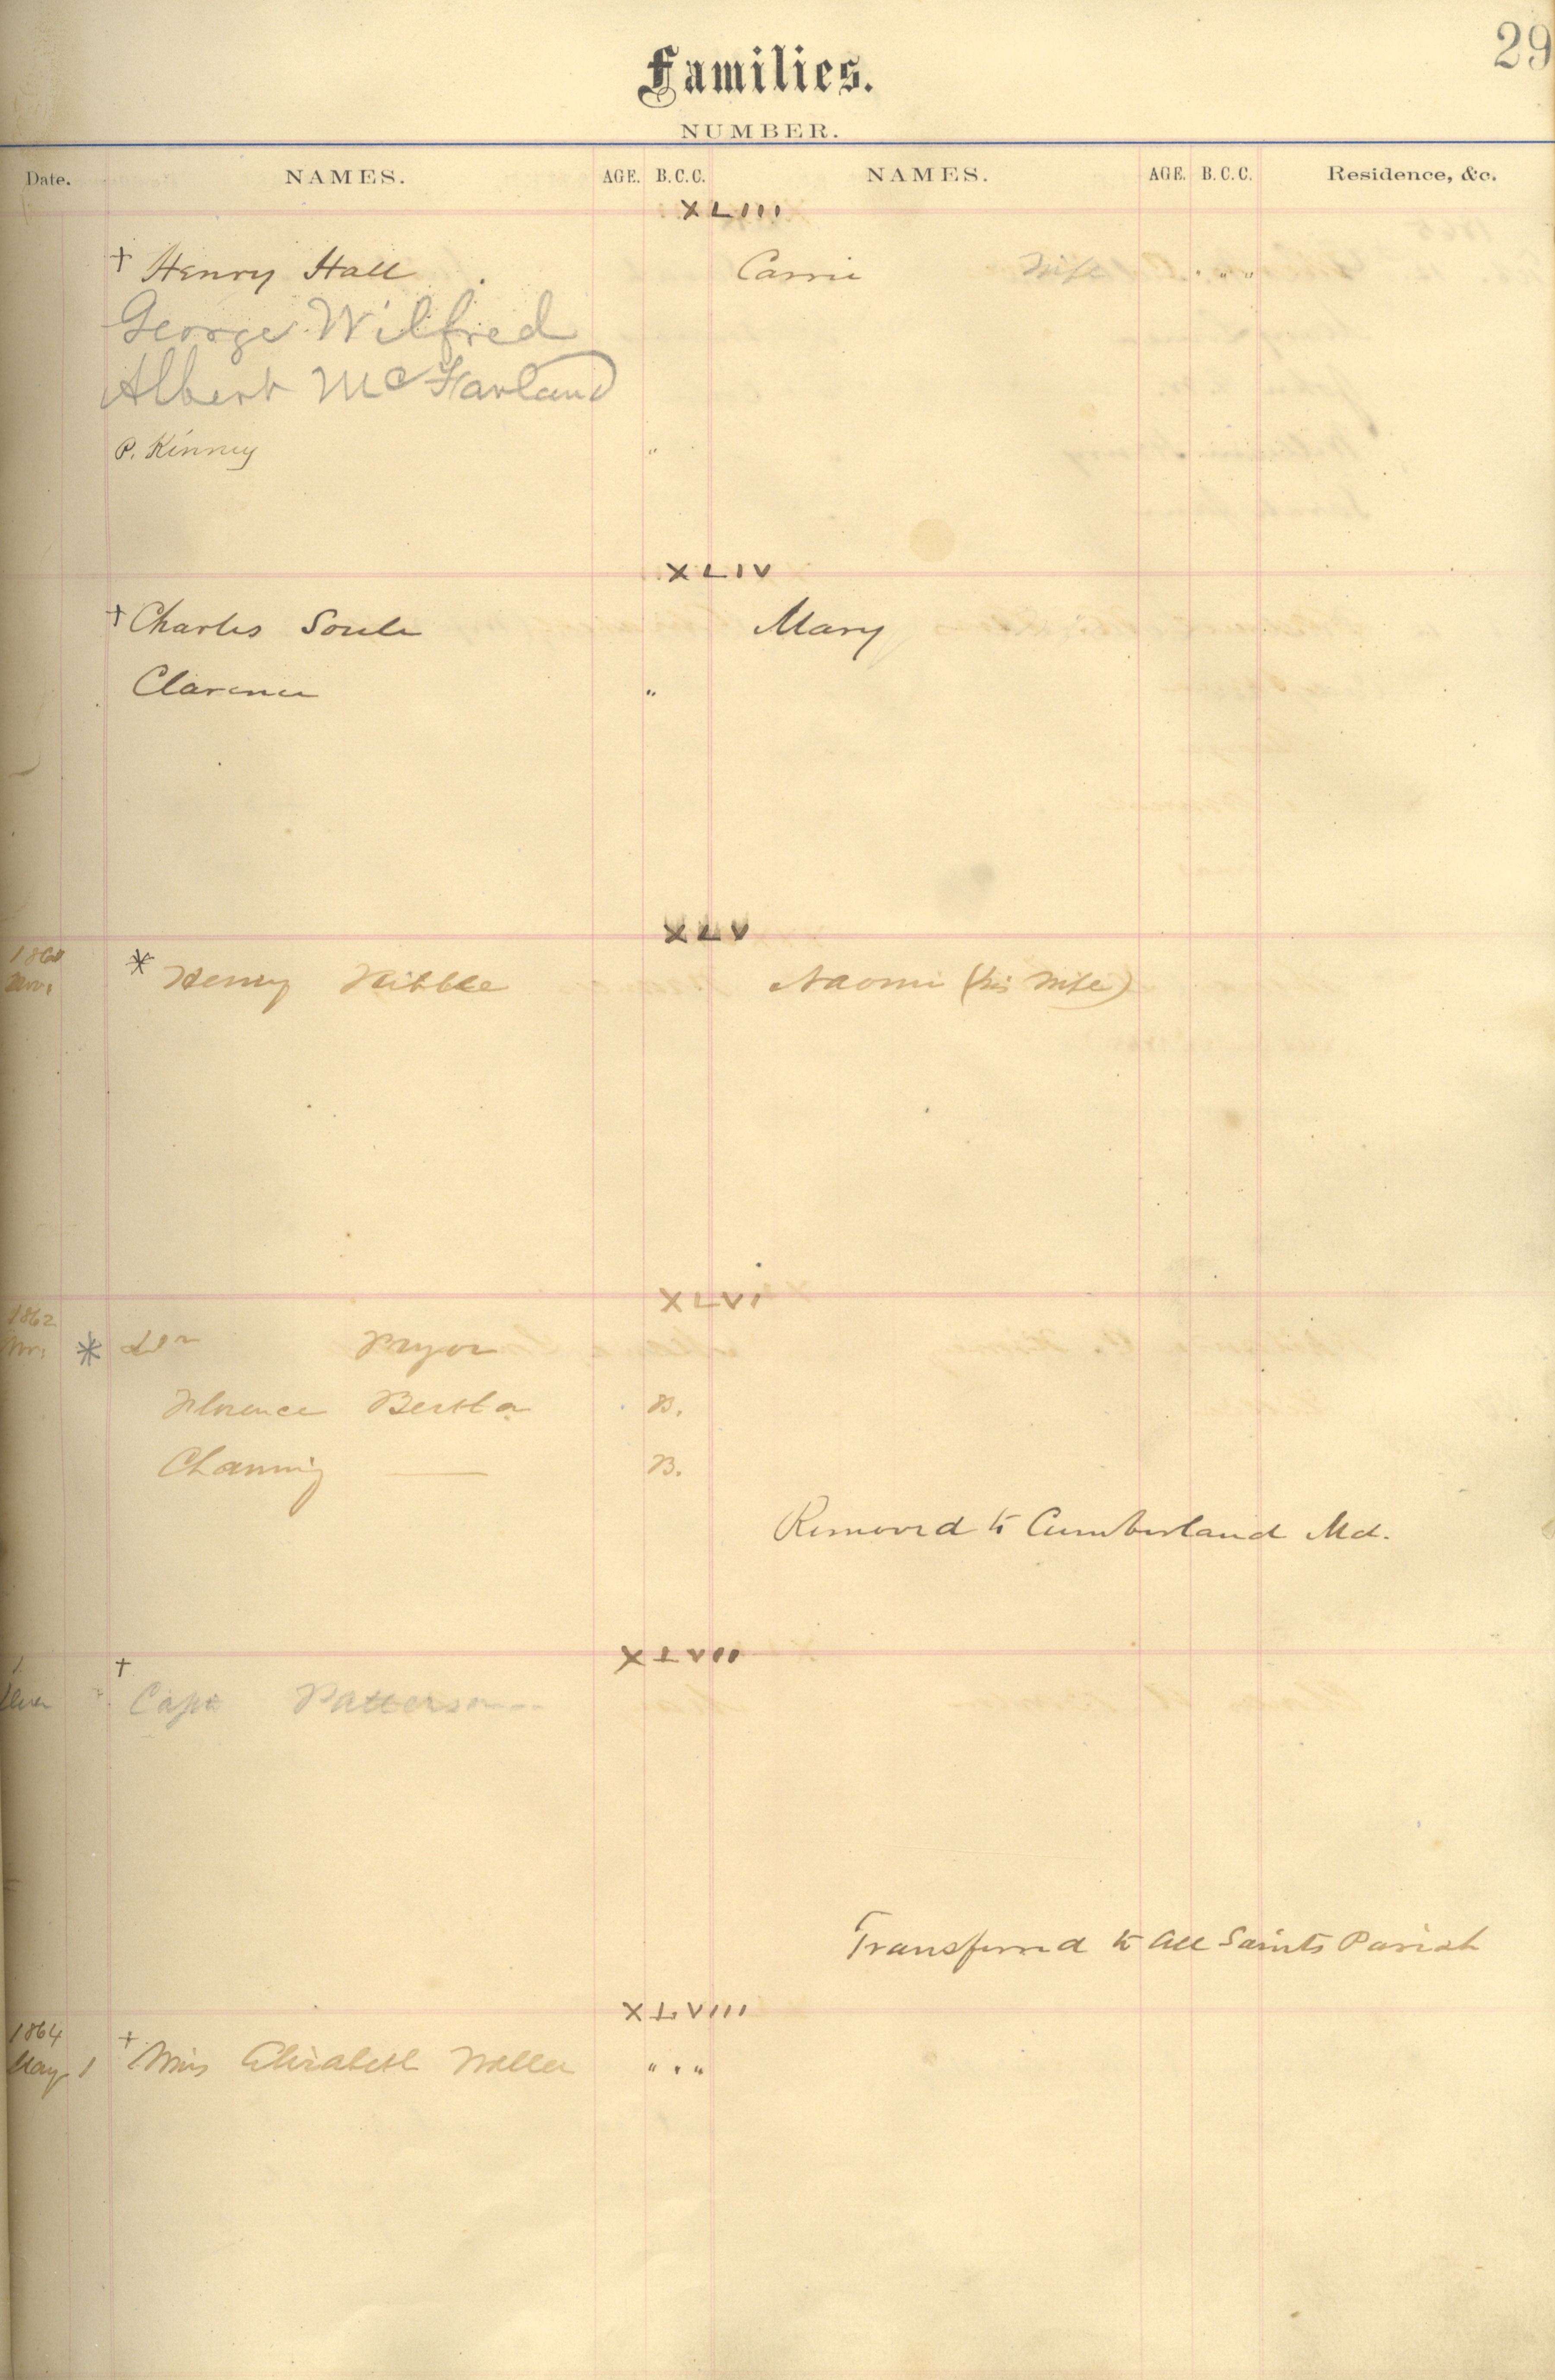 29
Families.
NUMBER.
Date. NAMES. AGE. B.C.C. NAMES. AGE. B.C.C. Residence, &c.
XLIII
+ Henry Hall Carrie Wife " " "
George Wilfred
Albert McFarland
P. Kinney "
XLIV
+ Charles Soule Mary
Clarence "
XLV
1860
Nov. * Henry Kibble Naomi (his Wife)
XLVI
1862
Nov. * Dr Pryor
Florence Bertha B.
Channing — B.
Removed to Cumberland Md.
XLVII
+
Capt Patterson
Transferred to All Saints Parish
XLVIII
1864
May 1 + Miss Elizabeth Waller " " "